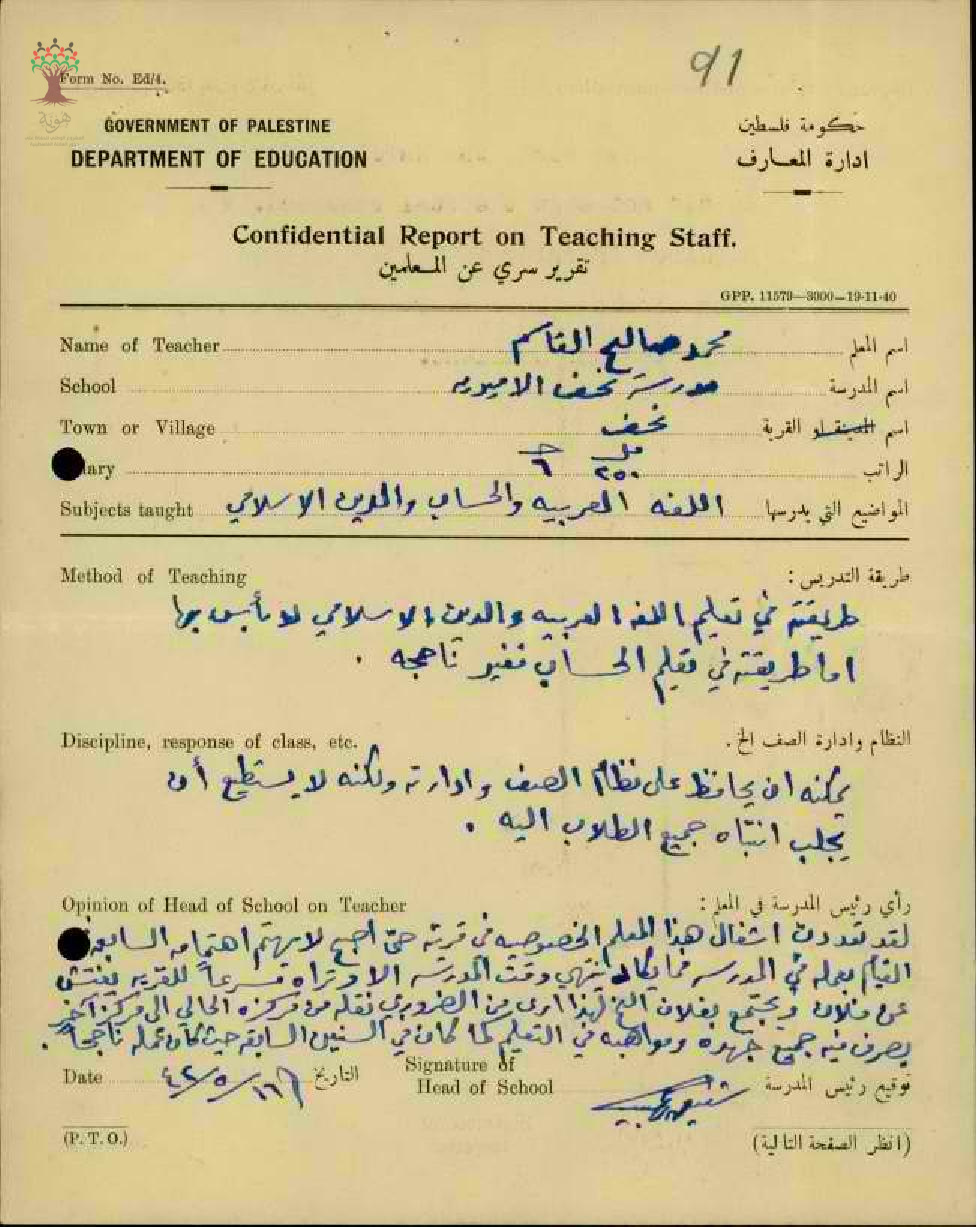 91
Form No. Ed/4.
هوية
GOVERNMENT OF PALESTINE
حكومة فلسطين
DEPARTMENT OF EDUCATION
ادارة المعارف
Confidential Report on Teaching Staff.
تقرير سري عن المعلمين
GPP. 11579—3000—19-11-40
Name of Teacher محمد صالح القاسم اسم المعلم
School مدرسة نحف الاميريه اسم المدرسة
Town or Village نحف اسم المدينة او القرية
ary ٦ ج ٢٥٠ مل الراتب
Subjects taught اللغه العربيه والحساب والدين الاسلامي المواضيع التي يدرسها
Method of Teaching طريقة التدريس :
طريقته في تعليم اللغه العربيه والدين الاسلامي لا بأس بها
اما طريقته في تعليم الحساب فغير ناجحه .
Discipline, response of class, etc. النظام وادارة الصف الخ .
يمكنه ان يحافظ على نظام الصف وادارته ولكنه لا يستطيع أن
يجلب انتباه جميع الطلاب اليه .
Opinion of Head of School on Teacher رأي رئيس المدرسة في المعلم :
لقد تعددت اشغال هذا المعلم الخصوصيه في قريته حتى اصبح لا يهتم اهتمامه السابق
القيام بعمله في المدرسه فما يكاد ينتهي وقت المدرسه الا وتراه مسرعاً للقريه يفتش
عن فلان ويجتمع بفلان الخ لهذا ارى من الضروري نقله من مركزه الحالي الى مركز آخر
يصرف فيه جميع جهده ومواهبه في التعليم كما كان في السنين السابقه حيث كان عمله ناجحاً .
Date ١٦/٥/٤٢ التاريخ
Signature of
Head of School توقيع رئيس المدرسة
(P. T. O.)
(انظر الصفحة التالية)